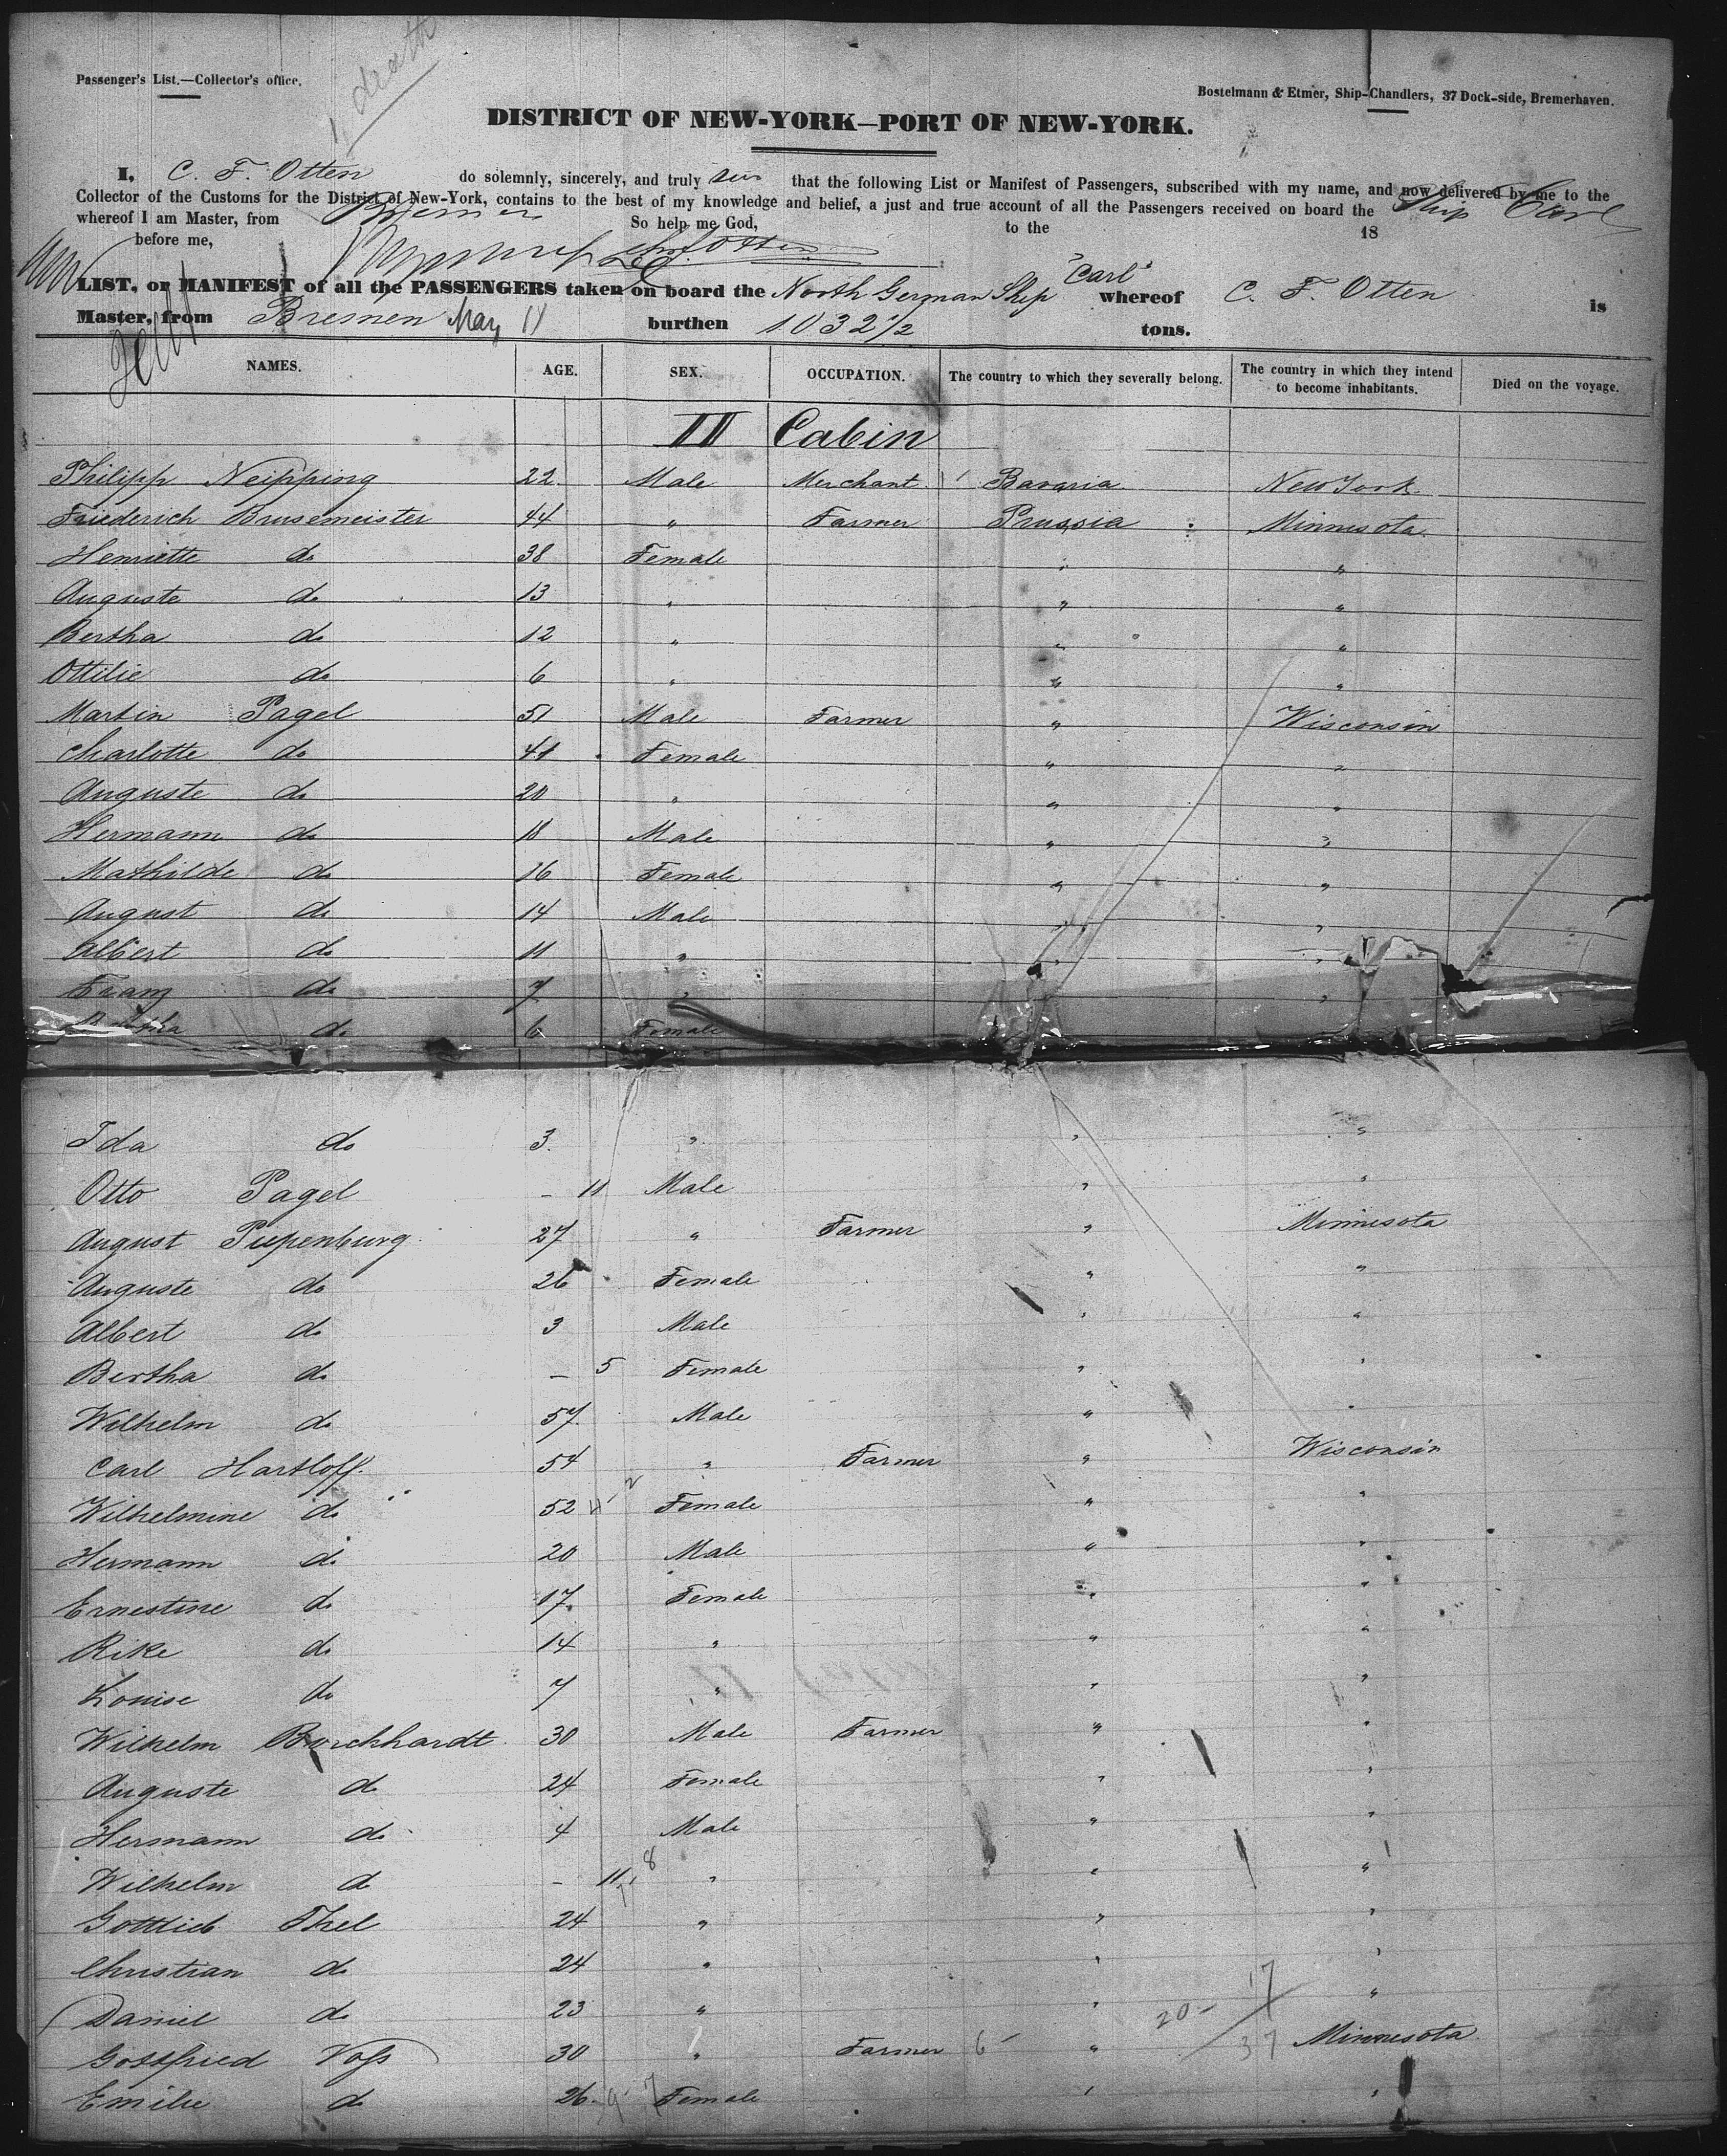 1 death
Passenger's List.—Collector's office.
Bostelmann & Etmer, Ship-Chandlers, 37 Dock-side, Bremerhaven.
DISTRICT OF NEW-YORK—PORT OF NEW-YORK.
I, C. F. Otten do solemnly, sincerely, and truly that the following List or Manifest of Passengers, subscribed with my name, and now delivered by me to the
Collector of the Customs for the District of New-York, contains to the best of my knowledge and belief, a just and true account of all the Passengers received on board the Ship Carl
whereof I am Master, from Bremen So help me God, to the 18
before me,
LIST, or MANIFEST of all the PASSENGERS taken on board the North German Ship "Carl" whereof C. F. Otten is
Master, from Bremen May 11 burthen 1032 1/2 tons.
NAMES. AGE. SEX. OCCUPATION. The country to which they severally belong. The country in which they intend to become inhabitants. Died on the voyage.
II Cabin
Philipp Neipping 22. Male Merchant Bavaria New York.
Friederich Brusemeister 44 " Farmer Prussia Minnesota.
Henriette do 38 Female " "
Auguste do 13 " " "
Bertha do 12 " " "
Ottilie do 6 " " "
Martin Pagel 51 Male Farmer " Wisconsin
Charlotte do 41 Female " "
Auguste do 20 " " "
Hermann do 18 Male " "
Mathilde do 16 Female " "
August do 14 Male " "
Albert do 11 " " "
Franz do 7 " "
Bertha do 6 Female
Ida do 3. " " "
Otto Pagel – 11 Male " "
August Piepenburg 27 " Farmer " Minnesota
Auguste do 26 Female " "
Albert do 3 Male " "
Bertha do – 5 Female " "
Wilhelm do 57 Male " "
Carl Hartloff. 54 " Farmer " Wisconsin
Wilhelmine do 52 Female " "
Hermann do 20 Male " "
Ernestine do 17. Female " "
Rike do 14 " " "
Louise do 7 " " "
Wilhelm Borchhardt 30 Male Farmer " "
Auguste do 24 Female " "
Hermann do 4 Male " "
Wilhelm do – 11 " " "
Gottlieb Thel 24 " " "
Christian do 24 " " "
Daniel do 23 " " "
20– 17
Gottfried Voss 30 " Farmer 6– " 37 Minnesota
Emilie do 26. 9– 7 Female " "